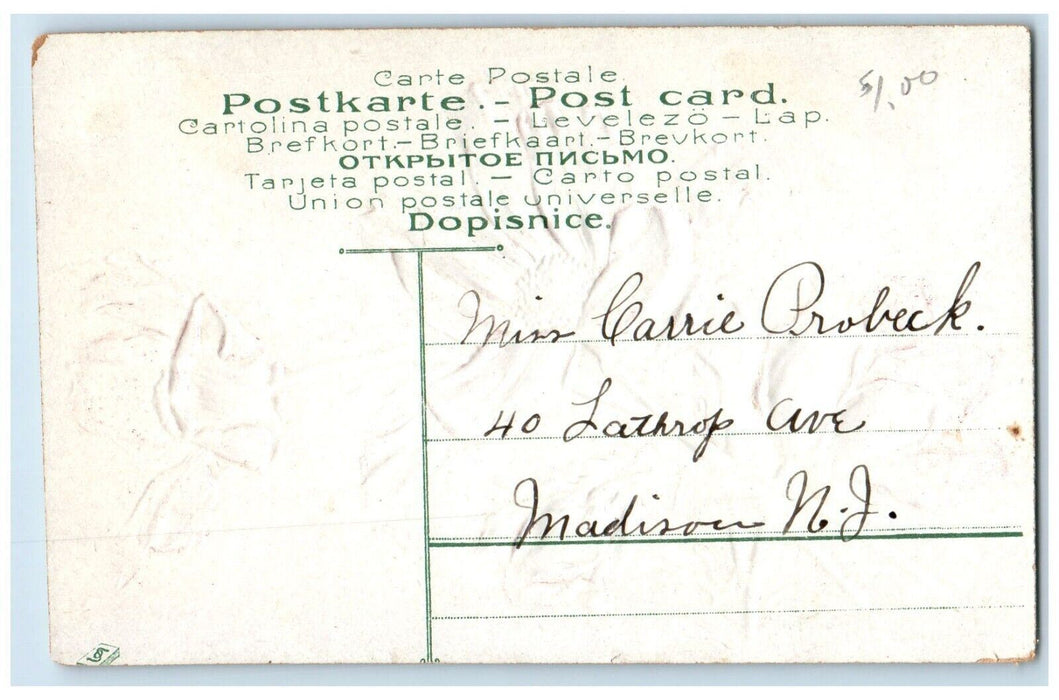 Carte Postale.
Postkarte.- Post card.
Cartolina postale. - Levelezö - Lap.
Brefkort.-Briefkaart.-Brevkort.
ОТКРЫТОЕ ПИСЬМО.
Tarjeta postal. - Carto postal.
Union postale universelle.
Dopisnice.
Miss Carrie Probeck.
40 Lathrop Ave
Madison N.J.